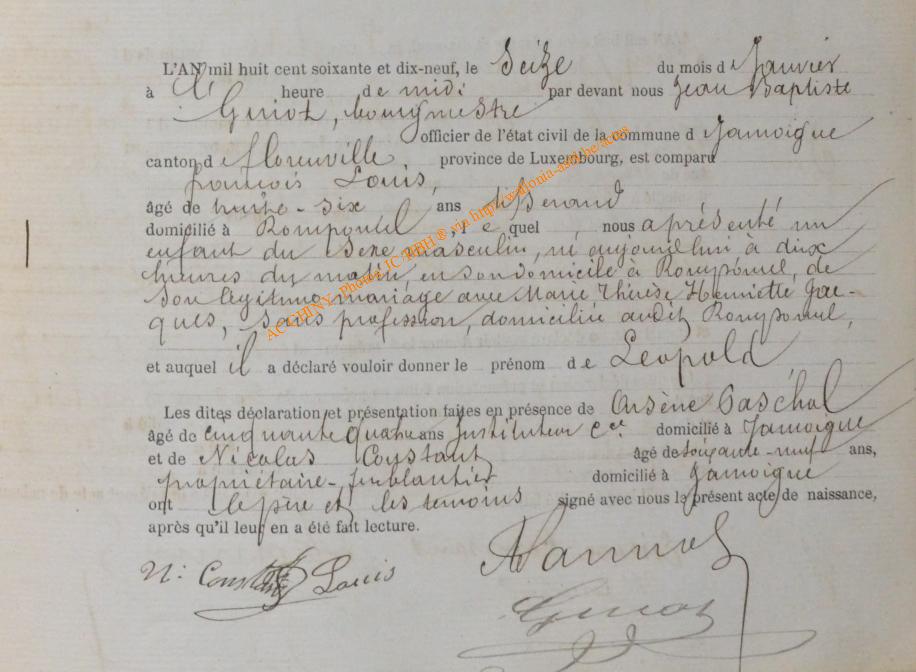 L'AN mil huit cent soixante et dix-neuf, le Seize du mois de Janvier
à heure de midi par devant nous Jean Baptiste
Guiot, bourgmestre
officier de l'état civil de la commune d Jamoigne
canton d Florenville, province de Luxembourg, est comparu
françois Louis,
âgé de trente-six ans tisserand
domicilié à Romponcel, le quel nous a présenté un
enfant du sexe masculin, né aujourd'hui à dix
heures du matin, en son domicile à Romponcel, de
son légitime mariage avec Marie Thérèse Henriette Jac-
ques, sans profession, domiciliée audit Romponcel,
et auquel il a déclaré vouloir donner le prénom de Léopold
Les dites déclaration et présentation faites en présence de Arsène Paschal
âgé de cinquante quatre ans Instituteur cal domicilié à Jamoigne
et de Nicolas Constant âgé de soixante-neuf ans,
propriétaire-ferblantier domicilié à Jamoigne
ont le père et les témoins signé avec nous le présent acte de naissance,
après qu'il leur en a été fait lecture.
N: Constant Louis
Guiot
ACGHINY- Photos IC TBH ® via http://wallonia-asbl.be/actes